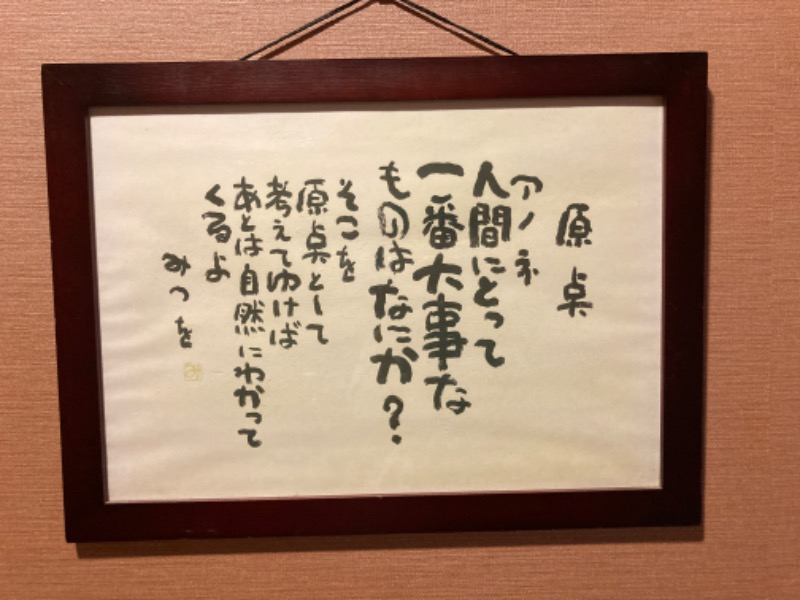 原点
アノネ
人間にとって
一番大事な
ものはなにか?
そこを
原点として
考えてゆけば
あとは自然にわかって
くるよ
みつを
み